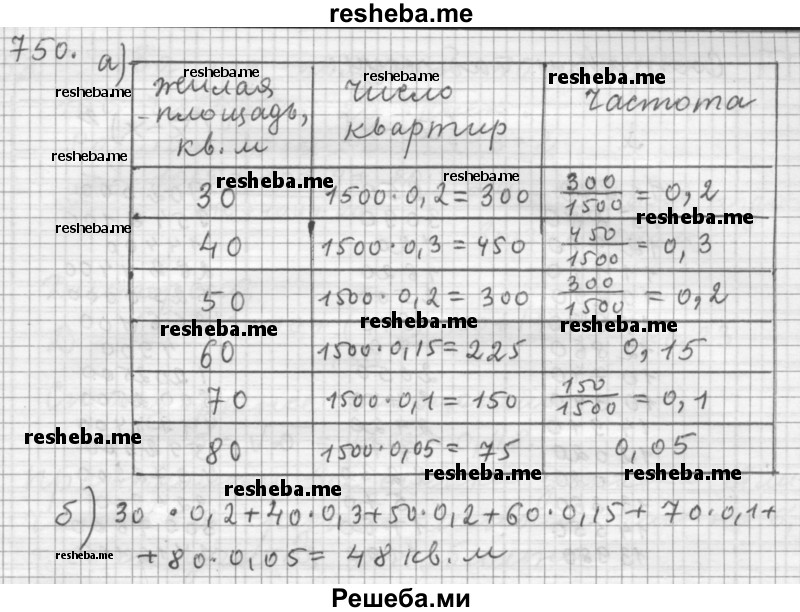 resheba.me
750. а)
resheba.me resheba.me resheba.me
resheba.me
жилая площадь, кв. м
число квартир
частота
resheba.me
resheba.me resheba.me
30 1500·0,2=300 300/1500 = 0,2
resheba.me
resheba.me
40 1500·0,3=450 450/1500 = 0,3
50 1500·0,2=300 300/1500 = 0,2
resheba.me resheba.me resheba.me
60 1500·0,15=225 0,15
70 1500·0,1=150 150/1500 = 0,1
resheba.me
80 1500·0,05=75 0,05
resheba.me resheba.me
resheba.me
б) 30·0,2+40·0,3+50·0,2+60·0,15+70·0,1+
resheba.me
+80·0,05=48 кв. м
Решеба.ми